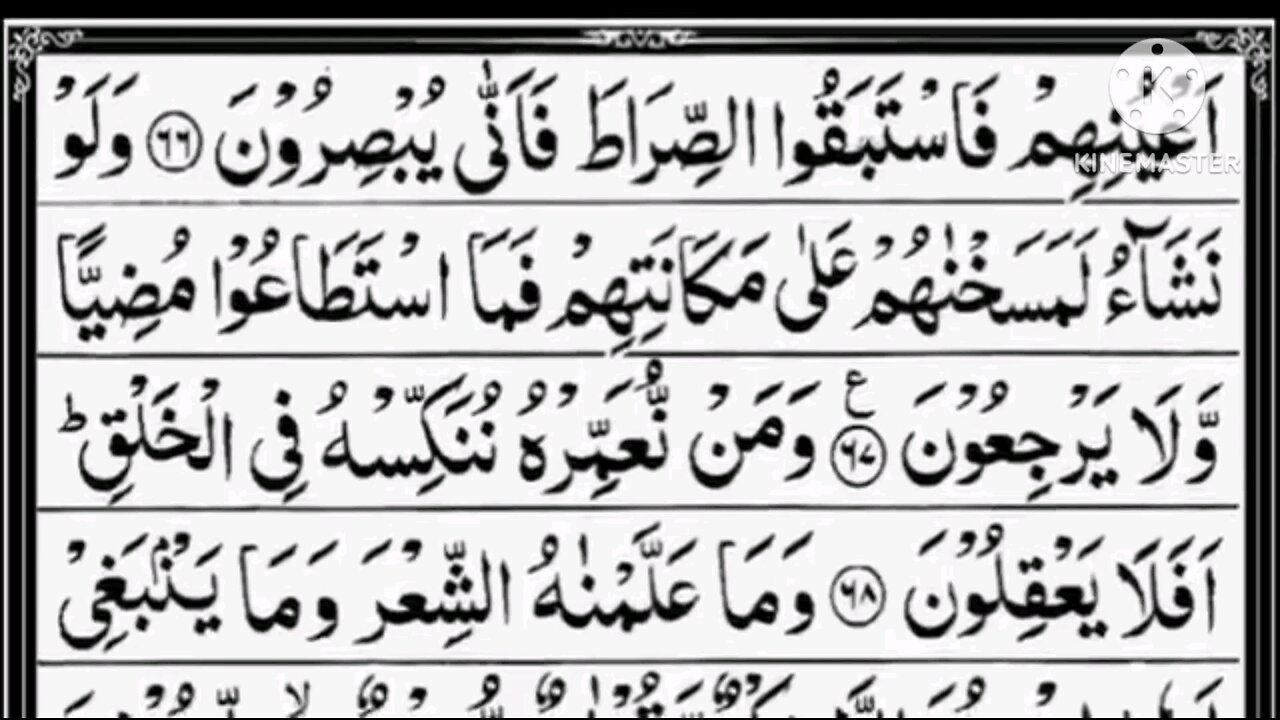 اَعْيُنِهِمْ فَاسْتَبَقُوا الصِّرَاطَ فَاَنّٰى يُبْصِرُوْنَ ﴿٦٦﴾ وَلَوْ
KINEMASTER
نَشَآءُ لَمَسَخْنٰهُمْ عَلٰى مَكَانَتِهِمْ فَمَا اسْتَطَاعُوْا مُضِيًّا
وَّلَا يَرْجِعُوْنَ ﴿٦٧﴾ ع وَمَنْ نُّعَمِّرْهُ نُنَكِّسْهُ فِى الْخَلْقِ ؕ
اَفَلَا يَعْقِلُوْنَ ﴿٦٨﴾ وَمَا عَلَّمْنٰهُ الشِّعْرَ وَمَا يَنْۢبَغِىْ